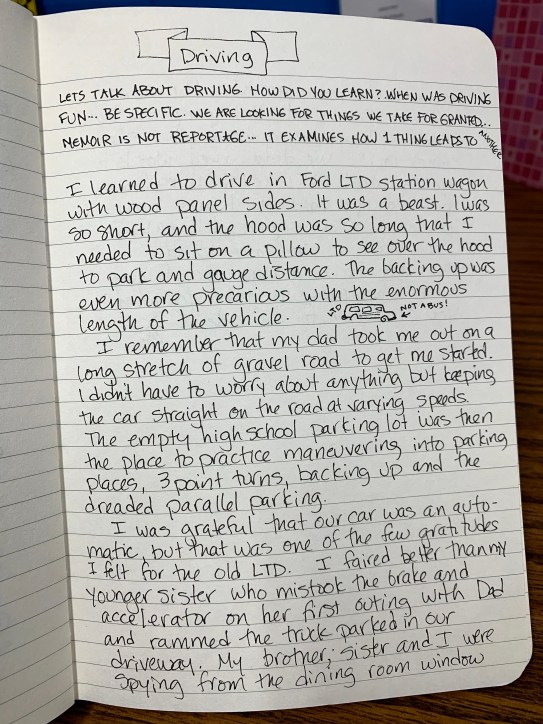 Driving
LETS TALK ABOUT DRIVING. HOW DID YOU LEARN? WHEN WAS DRIVING
FUN... BE SPECIFIC. WE ARE LOOKING FOR THINGS WE TAKE FOR GRANTED...
MEMOIR IS NOT REPORTAGE... IT EXAMINES HOW 1 THING LEADS TO ANOTHER
I learned to drive in Ford LTD station wagon
with wood panel sides. It was a beast. I was
so short, and the hood was so long that I
needed to sit on a pillow to see over the hood
to park and gauge distance. The backing up was
even more precarious with the enormous
length of the vehicle. LTD NOT A BUS!
I remember that my dad took me out on a
long stretch of gravel road to get me started.
I didn't have to worry about anything but keeping
the car straight on the road at varying speeds.
The empty high school parking lot was then
the place to practice maneuvering into parking
places, 3 point turns, backing up and the
dreaded parallel parking.
I was grateful that our car was an auto-
matic, but that was one of the few gratitudes
I felt for the old LTD. I faired better than my
younger sister who mistook the brake and
accelerator on her first outing with Dad
and rammed the truck parked in our
driveway. My brother, sister and I were
spying from the dining room window